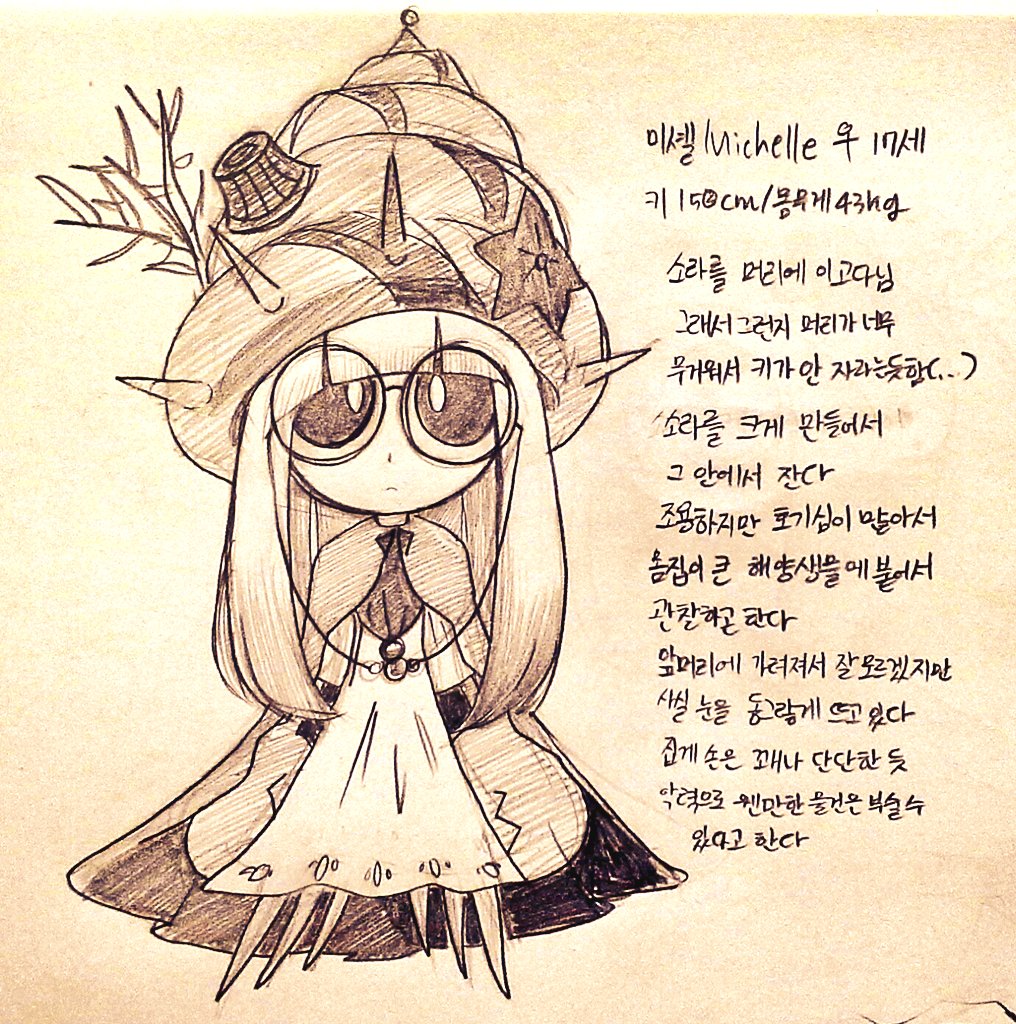 미셸 Michelle 우 17세
키 150cm/몸무게 43kg
소라를 머리에 이고다님
그래서그런지 머리가 너무
무거워서 키가 안 자라는듯함(...)
소라를 크게 만들어서
그 안에서 잔다
조용하지만 호기심이 많아서
몸집이 큰 해양생물에 붙어서
관찰하곤 한다
앞머리에 가려져서 잘모르겠지만
사실 눈을 동그랗게 뜨고 있다
집게 손은 꽤나 단단한 듯
악력으로 웬만한 물건은 부술 수
있다고 한다